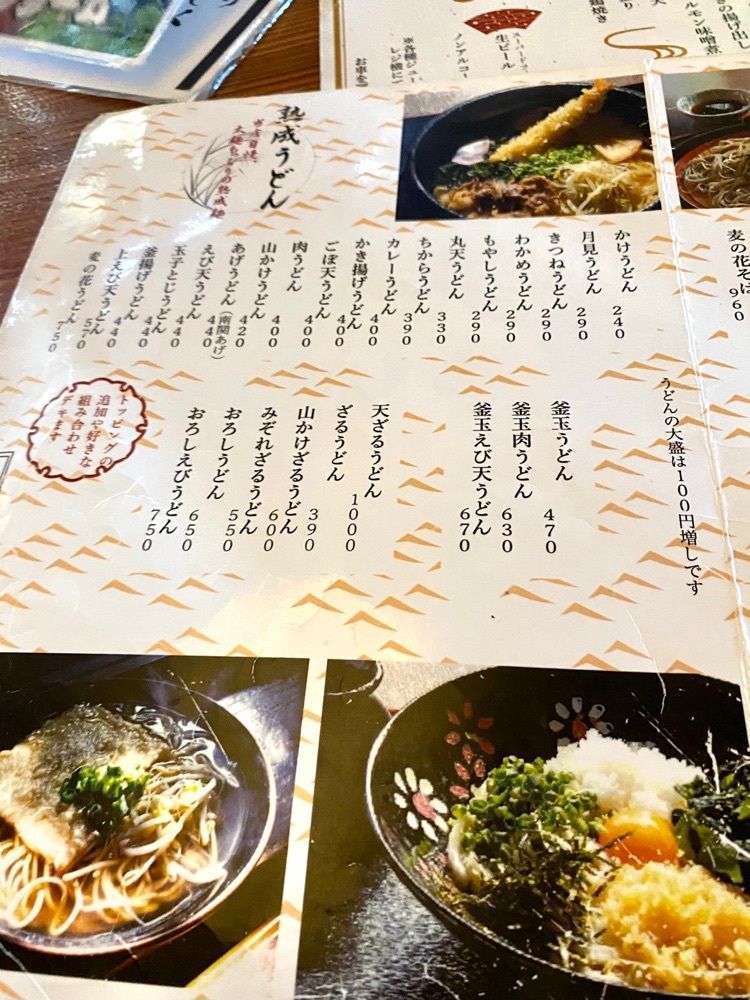 熟成うどん
当店自慢、
太麺もっちりの熟成麺
かけうどん 240
月見うどん 290
きつねうどん 290
わかめうどん 290
もやしうどん 290
丸天うどん 330
ちからうどん 390
カレーうどん 400
かき揚げうどん 400
ごぼ天うどん 400
肉うどん 400
山かけうどん 420
あげうどん(南関あげ) 440
えび天うどん 440
玉子とじうどん 440
釜揚げうどん 440
上えび天うどん 570
麦の花うどん 750
うどんの大盛は100円増しです
釜玉うどん 470
釜玉肉うどん 630
釜玉えび天うどん 670
天ざるうどん 1000
ざるうどん 390
山かけざるうどん 600
みぞれざるうどん 550
おろしうどん 650
おろしえびうどん 750
トッピングの
追加や好きな
組み合わせ
デキます
麦の花そば 960
の揚げ出し
ルモン味噌煮
鶏焼き
生ビール
ノンアルコー
※各種ジュー
レジ横に
お車を